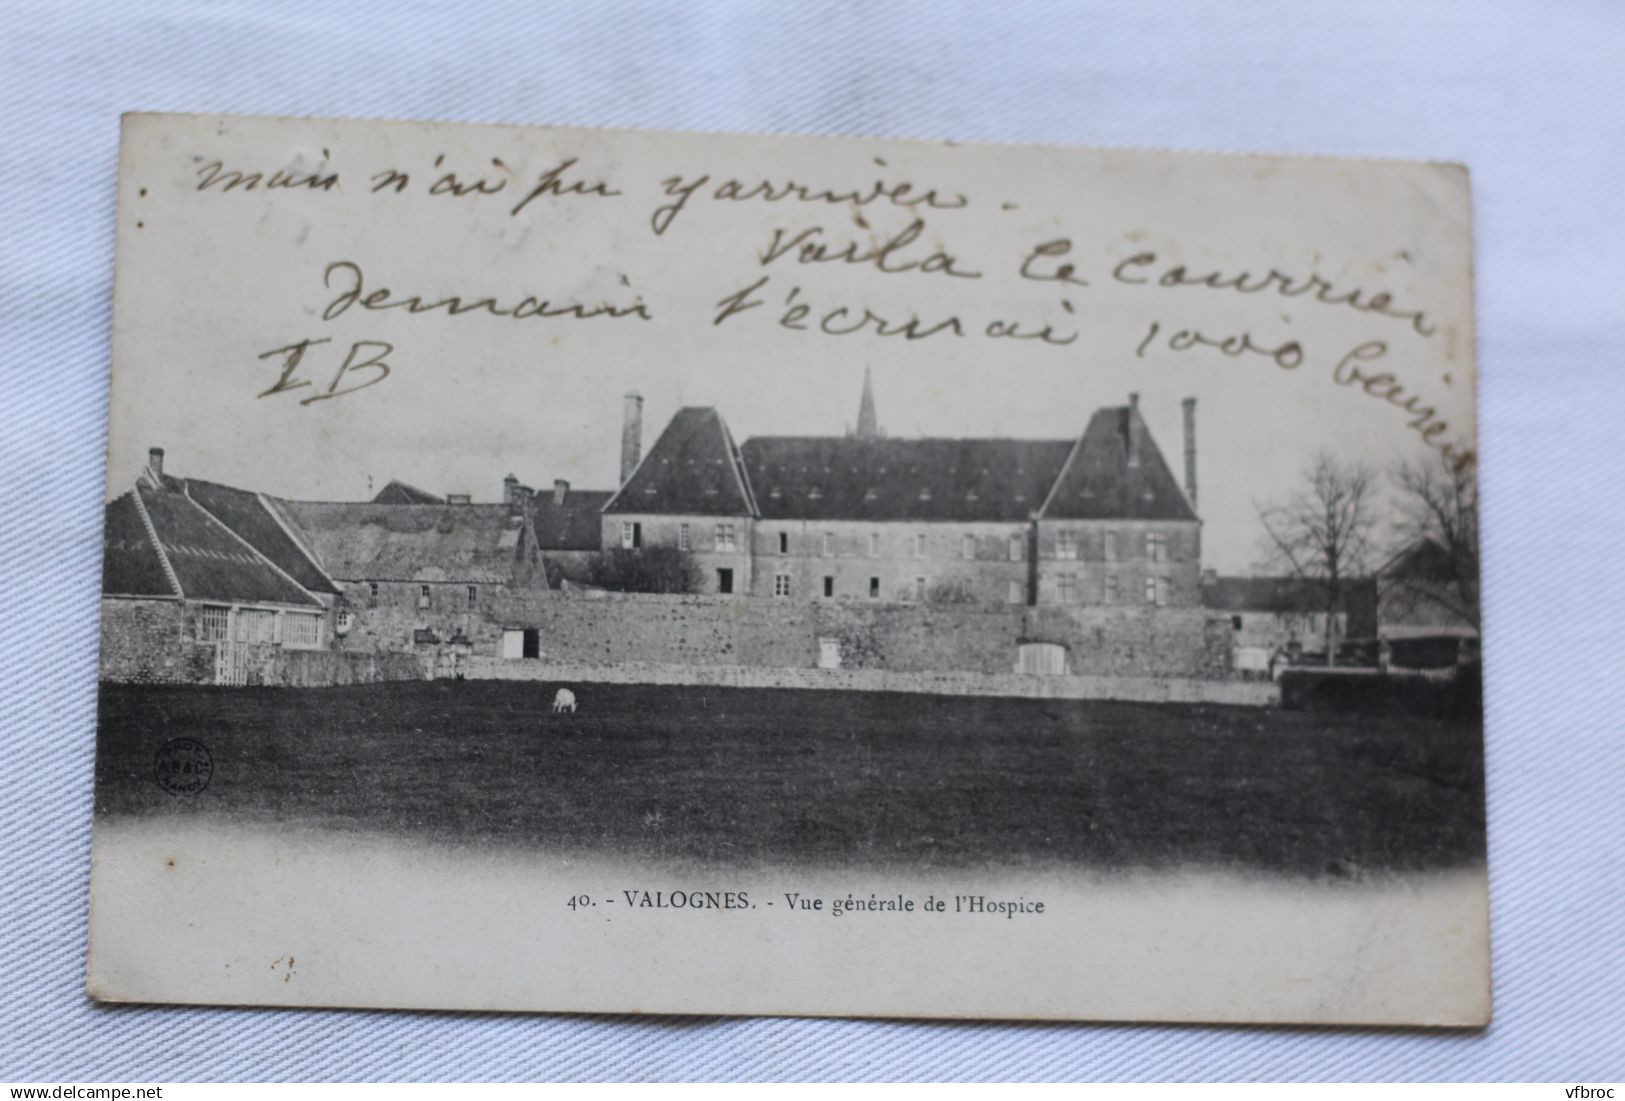 mais n'ai pu y arriver.
Voila le courrier
demain t'écrirai 1000 baisers
IB
A.B & Co
40. - VALOGNES. - Vue générale de l'Hospice
© www.delcampe.net
vfbroc